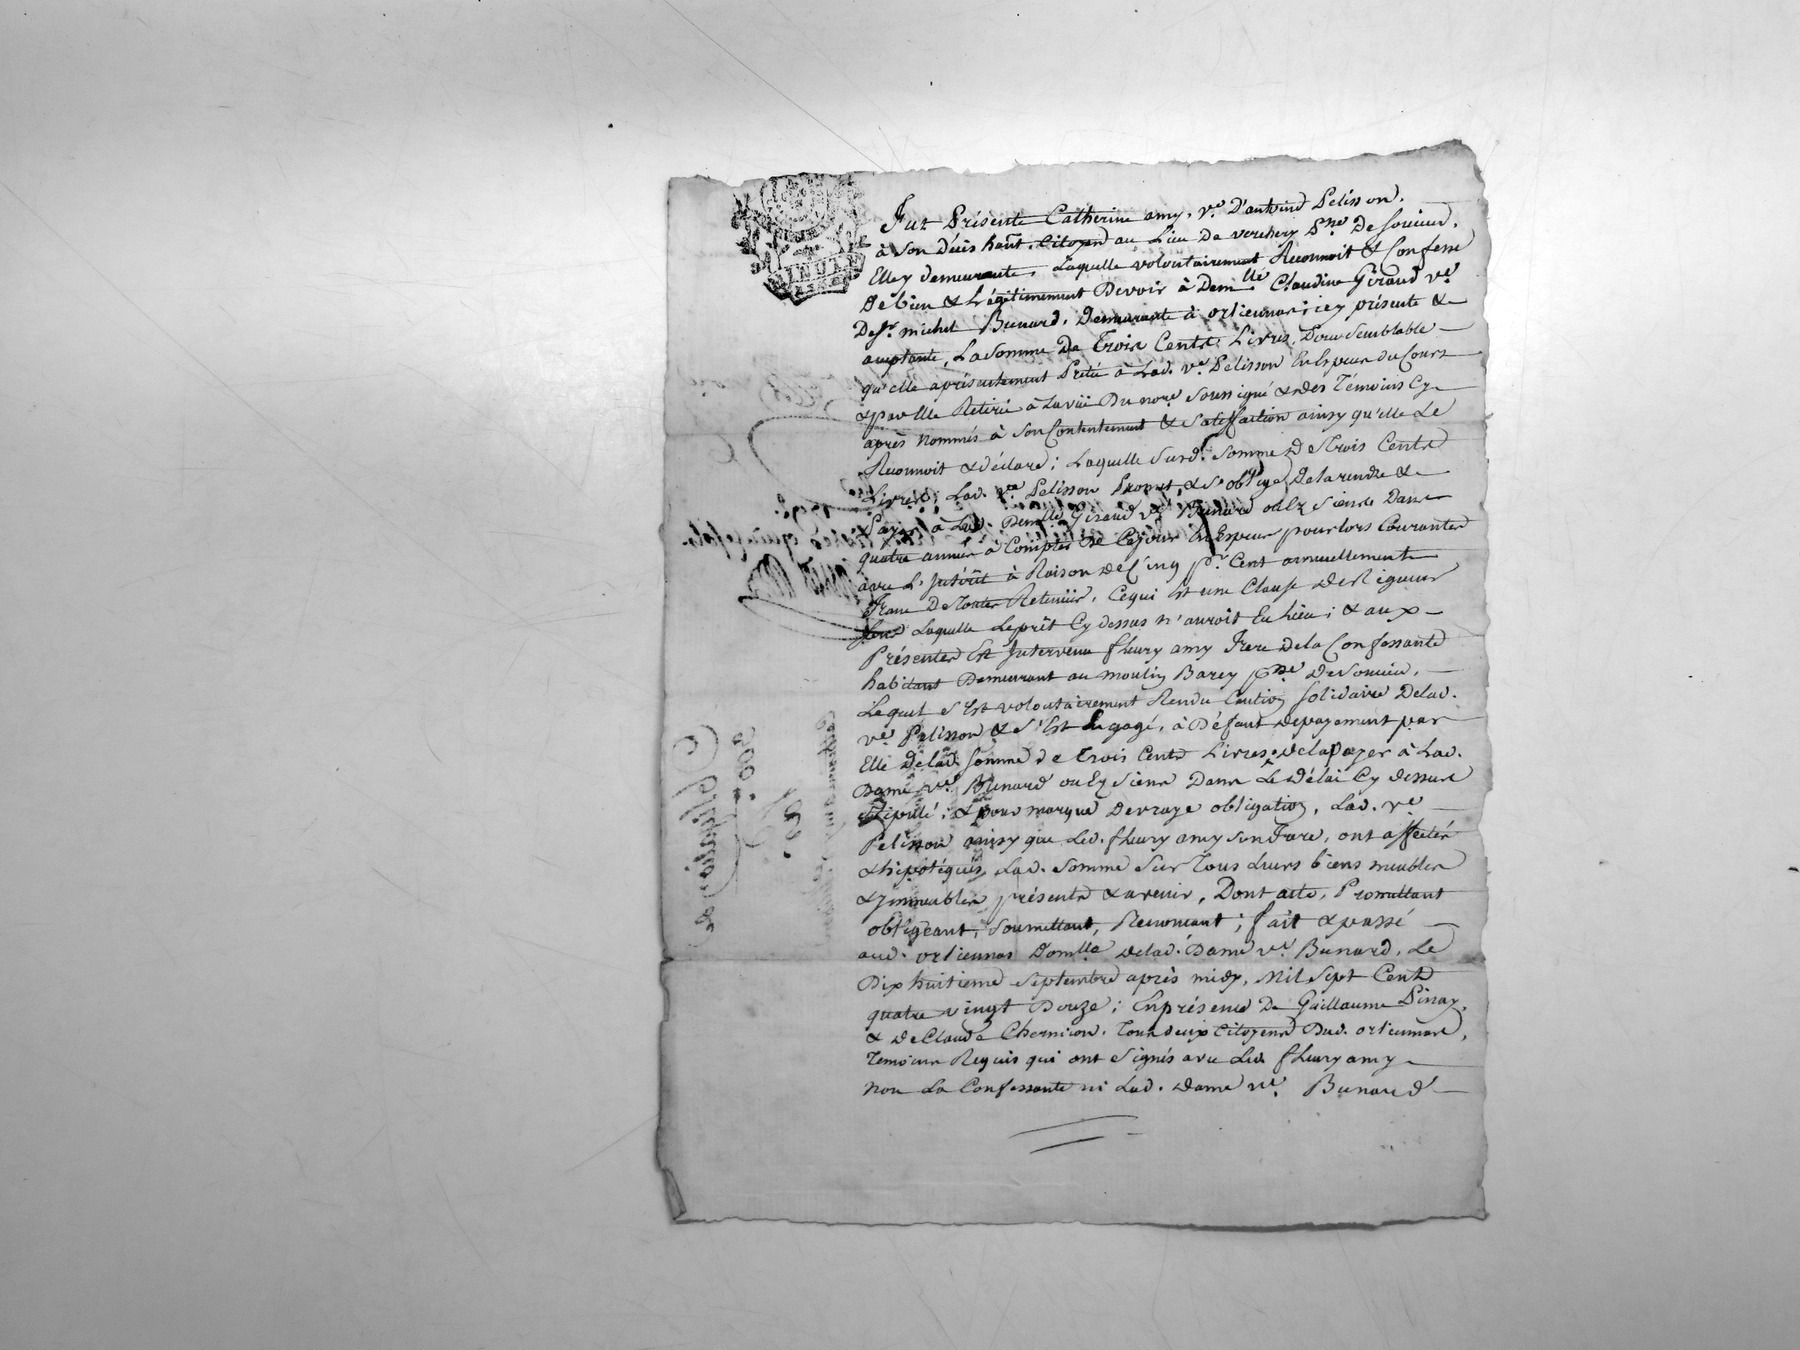 Fut Présente Catherine amy, ve. D'antoine Pelisson,
à Son Décès hañt. Citoyen au Lieu De verchery Psse De Soucieu,
Elle y demeurante, Laquelle volontairement Reconnoit & Confesse
De bien & Légitimement Devoir à Demlle Claudine Giraud ve.
De Sr. michel Bunard, Demeurante à orlienas; icy présente &
acceptante, La Somme De Trois Cents Livres, Pour Semblable
qu'elle a présentement Prété à Lad. ve Pelisson En Espece du Cours
& par Elle Retiré à La vüë Du nore Soussigné & des Témoins Cy
après Nommés à Son Contentement & Satisfaction ainsy qu'elle Le
Reconnoit & déclare; Laquelle Susd. Somme De Trois Cents
Livres, Lad. ve Pelisson Promet, & S'oblige De la rendre &
Payer à Lad. Demlle Giraud ve Bunard ou Ez Siens Dans
quatre années à Compter De Ce jour En Especes pour Lors Courantes
avec L'Intérêt à Raison De Cinq pr. Cent annuellement
Franc De Toutes Retenües, Ce qui Est une Clause De Rigueur
Sans Laquelle Le prêt Cy dessus n'auroit Eu Lieu; & aux
Présentes Est Intervenu fleury amy Frere De la Confessante
habitant Demeurant au moulin Barey psse De Soucieu,
Lequel S'Est volontairement Rendu Caution Solidaire De Lad.
ve. Pelisson & S'Est Engagé, à Défaut de payement par
Elle de Lad. Somme de Trois Cents Livres, de La payer à Lad.
Dame ve. Bunard ou Ez Siens Dans Le Délai Cy dessus
Stipulé, & pour marque De vraye obligation, Lad. ve
Pelisson ainsy que Led. fleury amy Son Frere, ont affectés
& hipotéqués Lad. Somme Sur Tous Leurs biens meubles
& Immeubles présents & avenir, Dont acte, Promettant
obligeant, Soumettant, Renoncant; fait & passé
aud. orlienas Domlle de Lad. Dame ve. Bunard, Le
Dix huitieme Septembre après midy, Mil Sept Cents
quatre vingt Douze; En présence De Guillaume Pinay,
& de Claude Chermion, Tous deux Citoyens Dud. orlienas,
Témoins Requis qui ont Signés avec Led. fleury amy
Non La Confessante ni Lad. Dame ve. Bunard